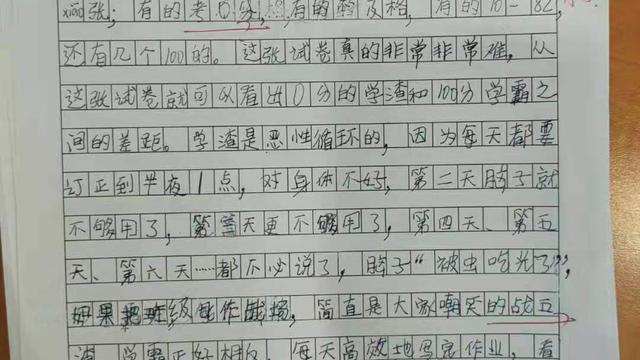 张；有的考0分，有的刚及格，有的10-82，
还有几个100的。这张试卷真的非常非常难，从
这张试卷就可以看出0分的学渣和100分学霸之
间的差距。学渣是恶性循环的，因为每天都要
订正到半夜1点，对身体不好，第二天脖子就
不够用了，第三天更不够用了，第四天、第五
天、第六天……都不必说了，脖子“被虫吃光了”，
如果把班级当作战场，简直是大家嘲笑的战五
渣，学霸正好相反，每天高效地写完作业，看